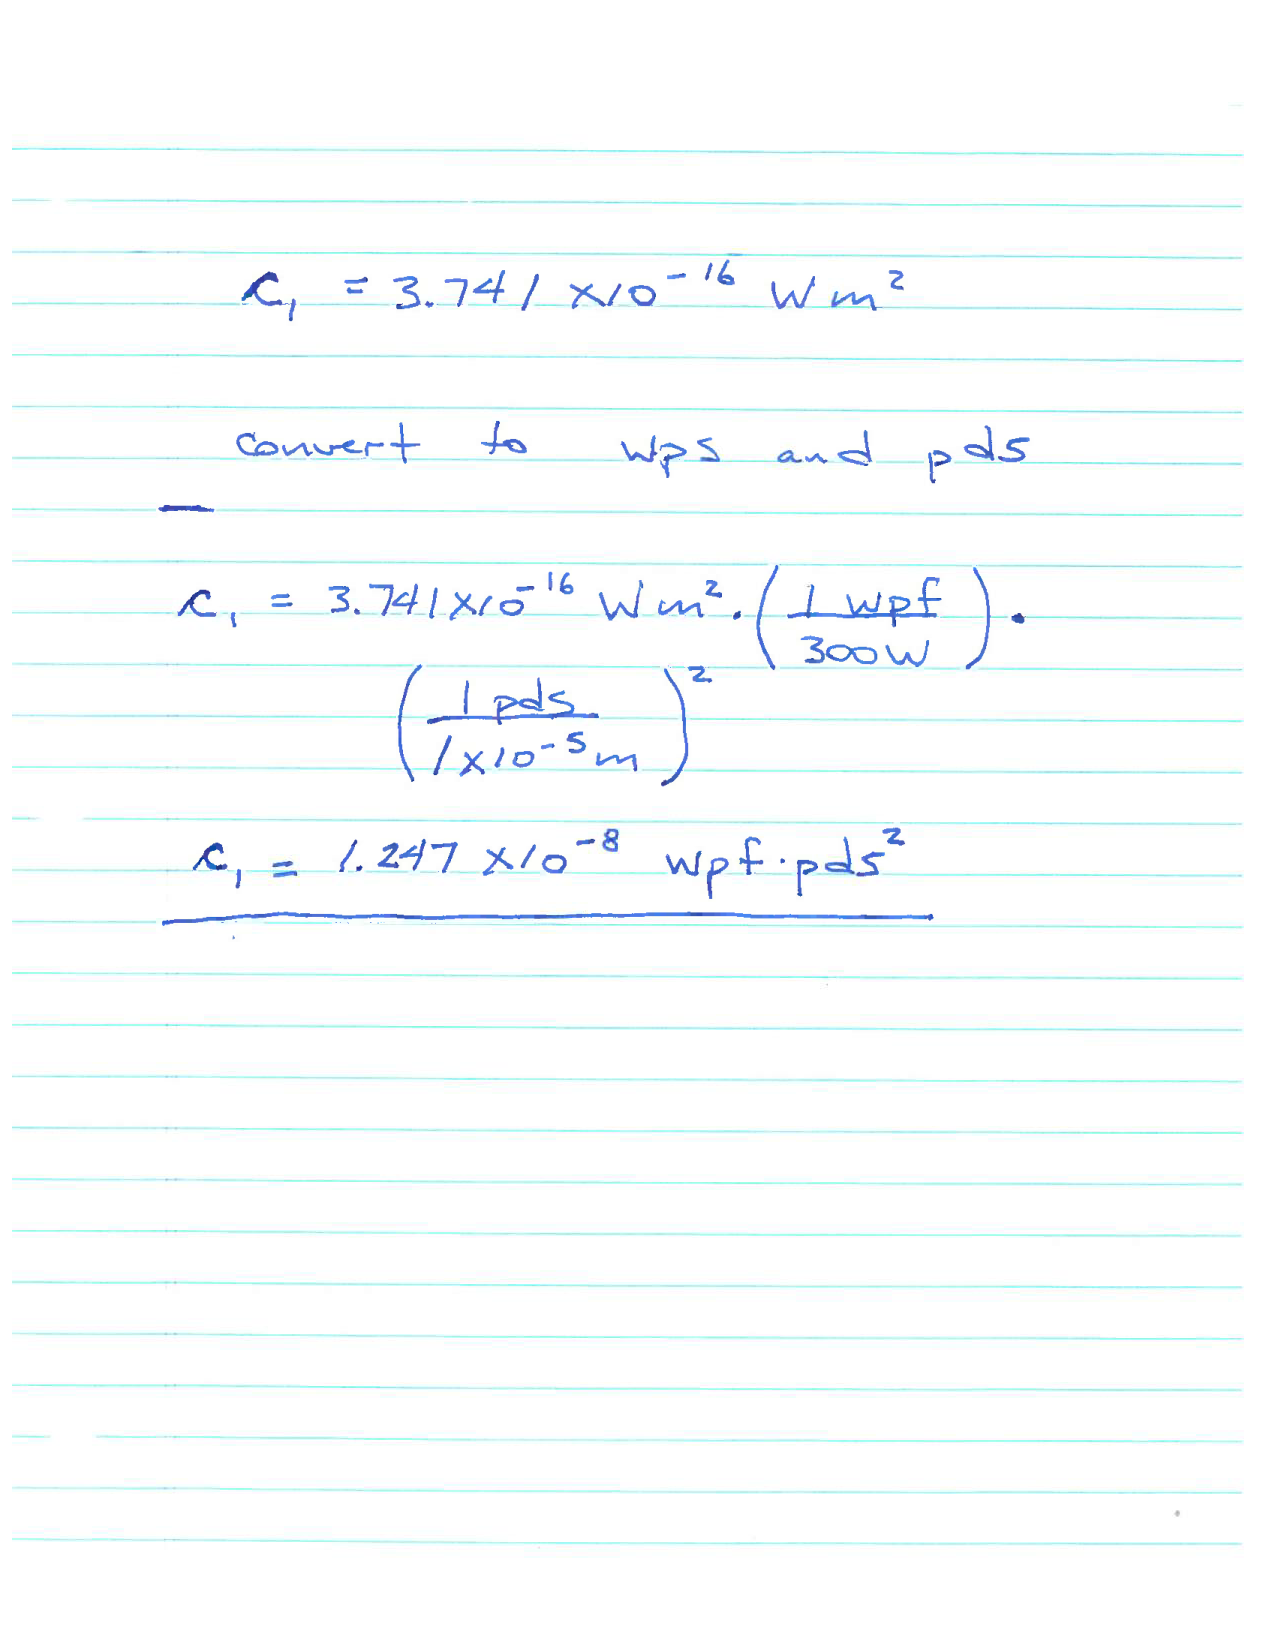 c₁ = 3.741 x10⁻¹⁶ W m²
convert to wps and pds
c₁ = 3.741x10⁻¹⁶ W m² . (1 wpf / 300W) .
(1 pds / 1x10⁻⁵ m)²
c₁ = 1.247 x10⁻⁸ wpf · pds²